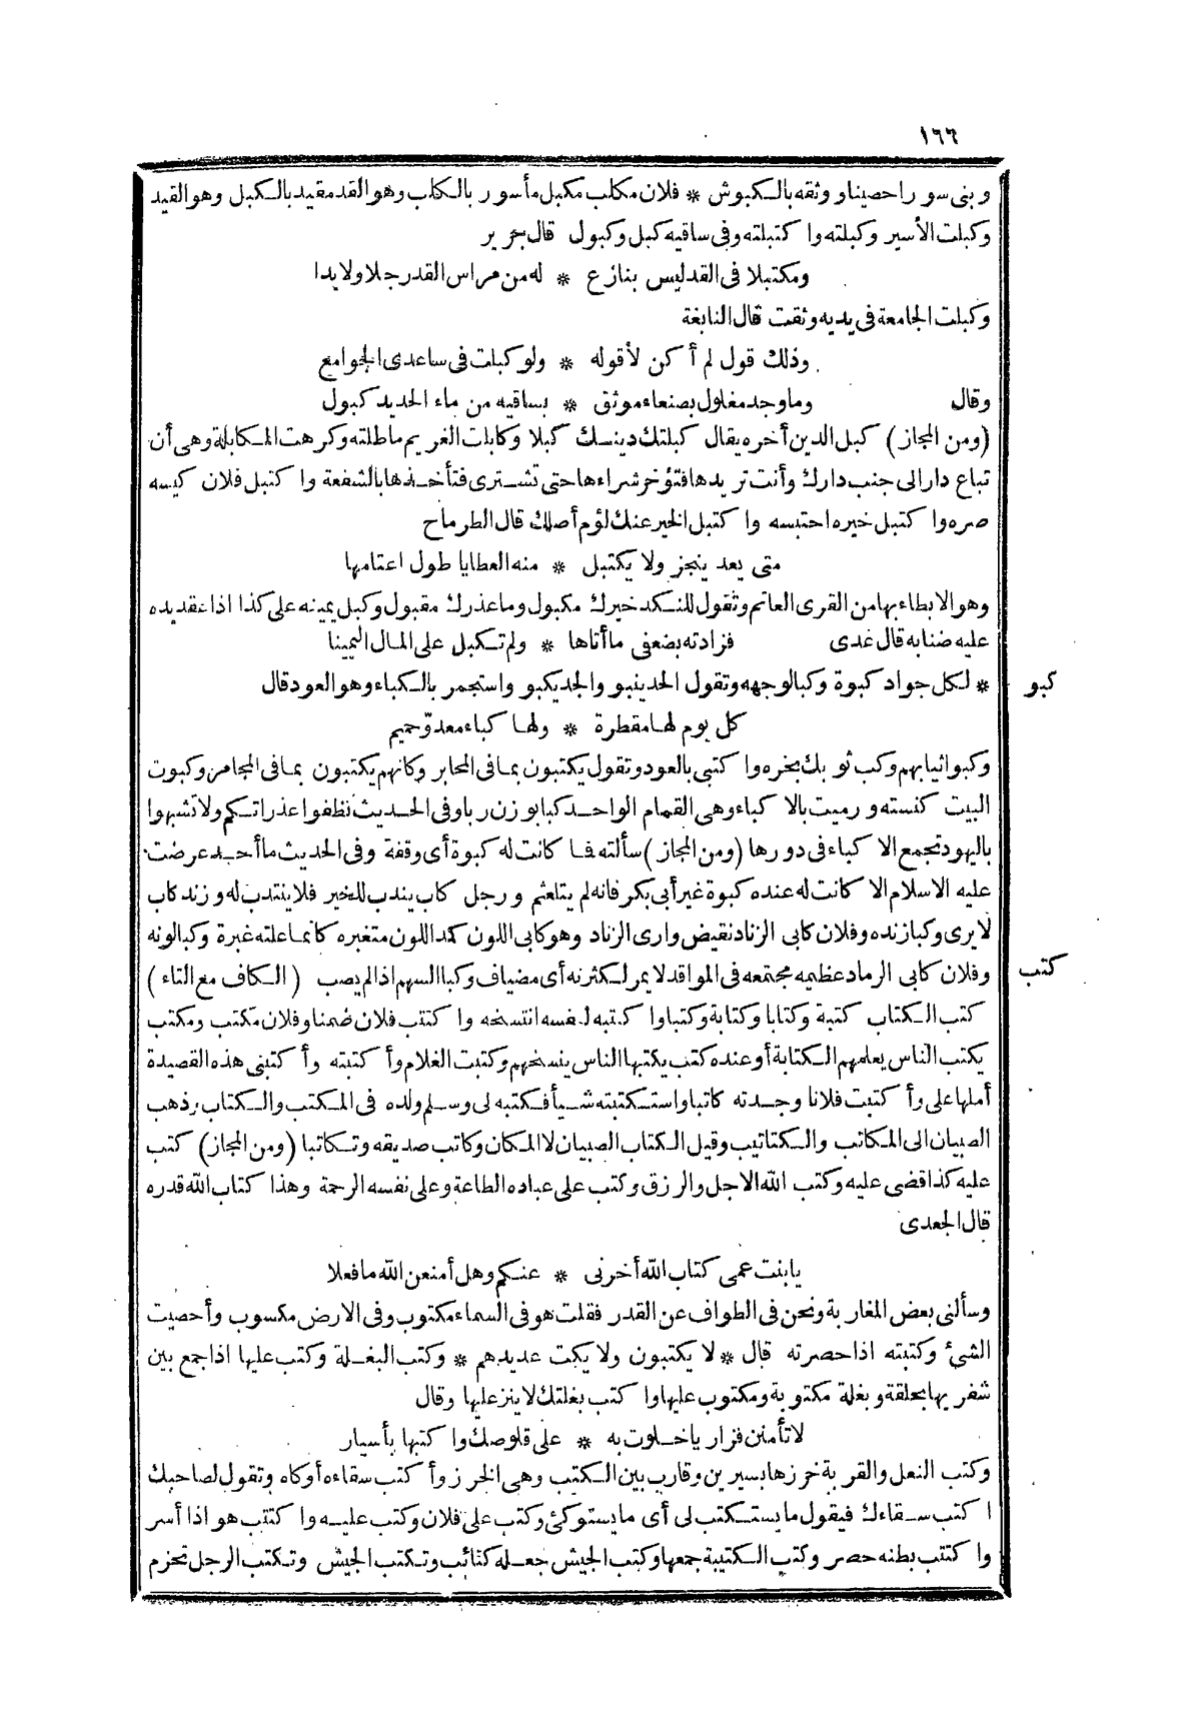 ١٦٦
وبنى سورا حصينا ووثقه بالكبوش * فلان مكلب مكبل مأسور بالكلب وهو القد مقيد بالكبل وهو القيد
وكبلت الأسير وكبلته واكتبلته وفى ساقيه كبل وكبول قال جرير
ومكتبلا فى القد ليس بنازع * له من مراس القد رجلا ولا يدا
وكبلت الجامعة فى يديه وثقت قال النابغة
وذلك قول لم أكن لأقوله * ولو كبلت فى ساعدى الجوامع
وقال وما وجد مغلول بصنعاء موثق * بساقيه من ماء الحديد كبول
(ومن المجاز) كبل الدين أخره يقال كبلتك دينك كبلا وكابلت الغريم ماطلته وكرهت المكابلة وهى أن
تباع دار الى جنب دارك وأنت تريدها فتؤخر شراءها حتى تشترى فتأخذها بالشفعة واكتبل فلان كيسه
صره واكتبل خيره احتبسه واكتبل الخير عنك لؤم أصلك قال الطرماح
متى يعد ينجز ولا يكتبل * منه العطايا طول اعتامها
وهو الابطاء بها من القرى العاتم وتقول للنكد خيرك مكبول وما عذرك مقبول وكبل يمينه على كذا اذا عقد يده
عليه ضنا به قال عدى فزادته بضعفى ما أتاها * ولم تكبل على المال اليمينا
كبو * لكل جواد كبوة وكبا لوجهه وتقول الحد ينبو والجد يكبو واستجمر بالكباء وهو العود قال
كل يوم لها مقطرة * ولها كباء معدّ وحميم
وكبوا ثيابهم وكب ثوبك بخره واكتبى بالعود وتقول يكتبون بما فى المحابر وكانهم يكتبون بما فى المجامر وكبوت
البيت كنسته ورميت بالاكباء وهى القمام الواحد كبا بوزن ربا وفى الحديث نظفوا عذراتكم ولا تشبهوا
باليهود تجمع الاكباء فى دورها (ومن المجاز) سألته فما كانت له كبوة أى وقفة وفى الحديث ما أحد عرضت
عليه الاسلام الا كانت له عنده كبوة غير أبى بكر فانه لم يتلعثم ورجل كاب يندب للخير فلا ينتدب له وزند كاب
لا يرى وكبا زنده وفلان كابى الزناد نقيض وارى الزناد وهو كابى اللون كمد اللون متغيره كانما علته غبرة وكبا لونه
وفلان كابى الرماد عظيمه مجتمعه فى المواقد لا يمر لكثرته أى مضياف وكبا السهم اذا لم يصب (الكاف مع التاء)
كتب كتب الكتاب كتبة وكتابا وكتابة وكتبا واكتتبه لنفسه انتسخه واكتتب فلان ضمنا وفلان مكتب ومكتب
يكتب الناس يعلمهم الكتابة أو عنده كتب يكتبها الناس ينسخهم وكتبت الغلام وأكتبته وأكتبنى هذه القصيدة
أملها على وأكتبت فلانا وجدته كاتبا واستكتبته شيأ فكتبه لى وسلم ولده فى المكتب والكتاب وذهب
الصبيان الى المكاتب والكتاتيب وقيل الكتاب الصبيان لا المكان وكاتب صديقه وتكاتبا (ومن المجاز) كتب
عليه كذا قضى عليه وكتب الله الاجل والرزق وكتب على عباده الطاعة وعلى نفسه الرحمة وهذا كتاب الله قدره
قال الجعدى
يا بنت عمى كتاب الله أخرنى * عنكم وهل أمنعن الله ما فعلا
وسألنى بعض المغاربة ونحن فى الطواف عن القدر فقلت هو فى السماء مكتوب وفى الارض مكسوب وأحصيت
الشئ وكتبته اذا حصرته قال * لا يكتبون ولا يكت عديدهم * وكتب البغلة وكتب عليها اذا جمع بين
شفريها بحلقة وبغلة مكتوبة ومكتوب عليها واكتب بغلتك لا ينز عليها وقال
لا تأمنن فزاريا خلوت به * على قلوصك واكتبها بأسيار
وكتب النعل والقربة خرزها بسيرين وقارب بين الكتب وهى الخرز وأكتب سقاءه أوكاه وتقول لصاحبك
اكتب سقاءك فيقول ما يستكتب لى أى ما يستوكئ وكتب على فلان وكتب عليه واكتتب هو اذا أسر
واكتتب بطنه حصر وكتب الكتيبة جمعها وكتب الجيش جعله كتائب وتكتب الجيش وتكتب الرجل تحزم